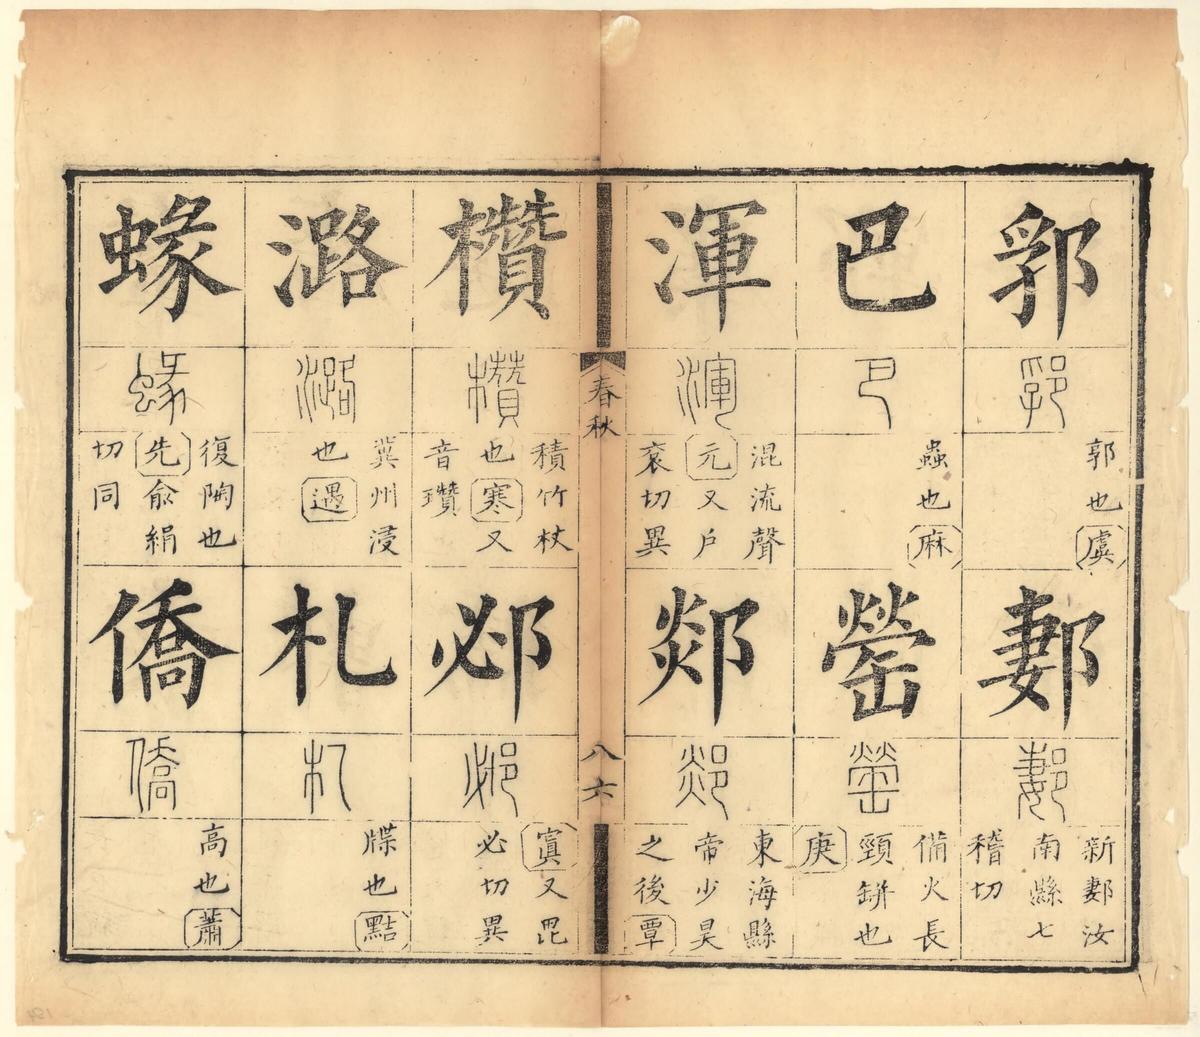 郛
郛
郭也虞
郪
郪
新郪汝
南縣七
稽切
巴
巴
蟲也麻
罃
罃
備火長
頸缾也
庚
渾
渾
混流聲
元又戶
袞切異
郯
郯
東海縣
帝少昊
之後覃
春秋
八六
欑
欑
積竹杖
也寒又
音瓚
邲
邲
寘又毘
必切異
潞
潞
冀州浸
也遇
札
札
牒也黠
蝝
蝝
復陶也
先兪絹
切同
僑
僑
高也蕭